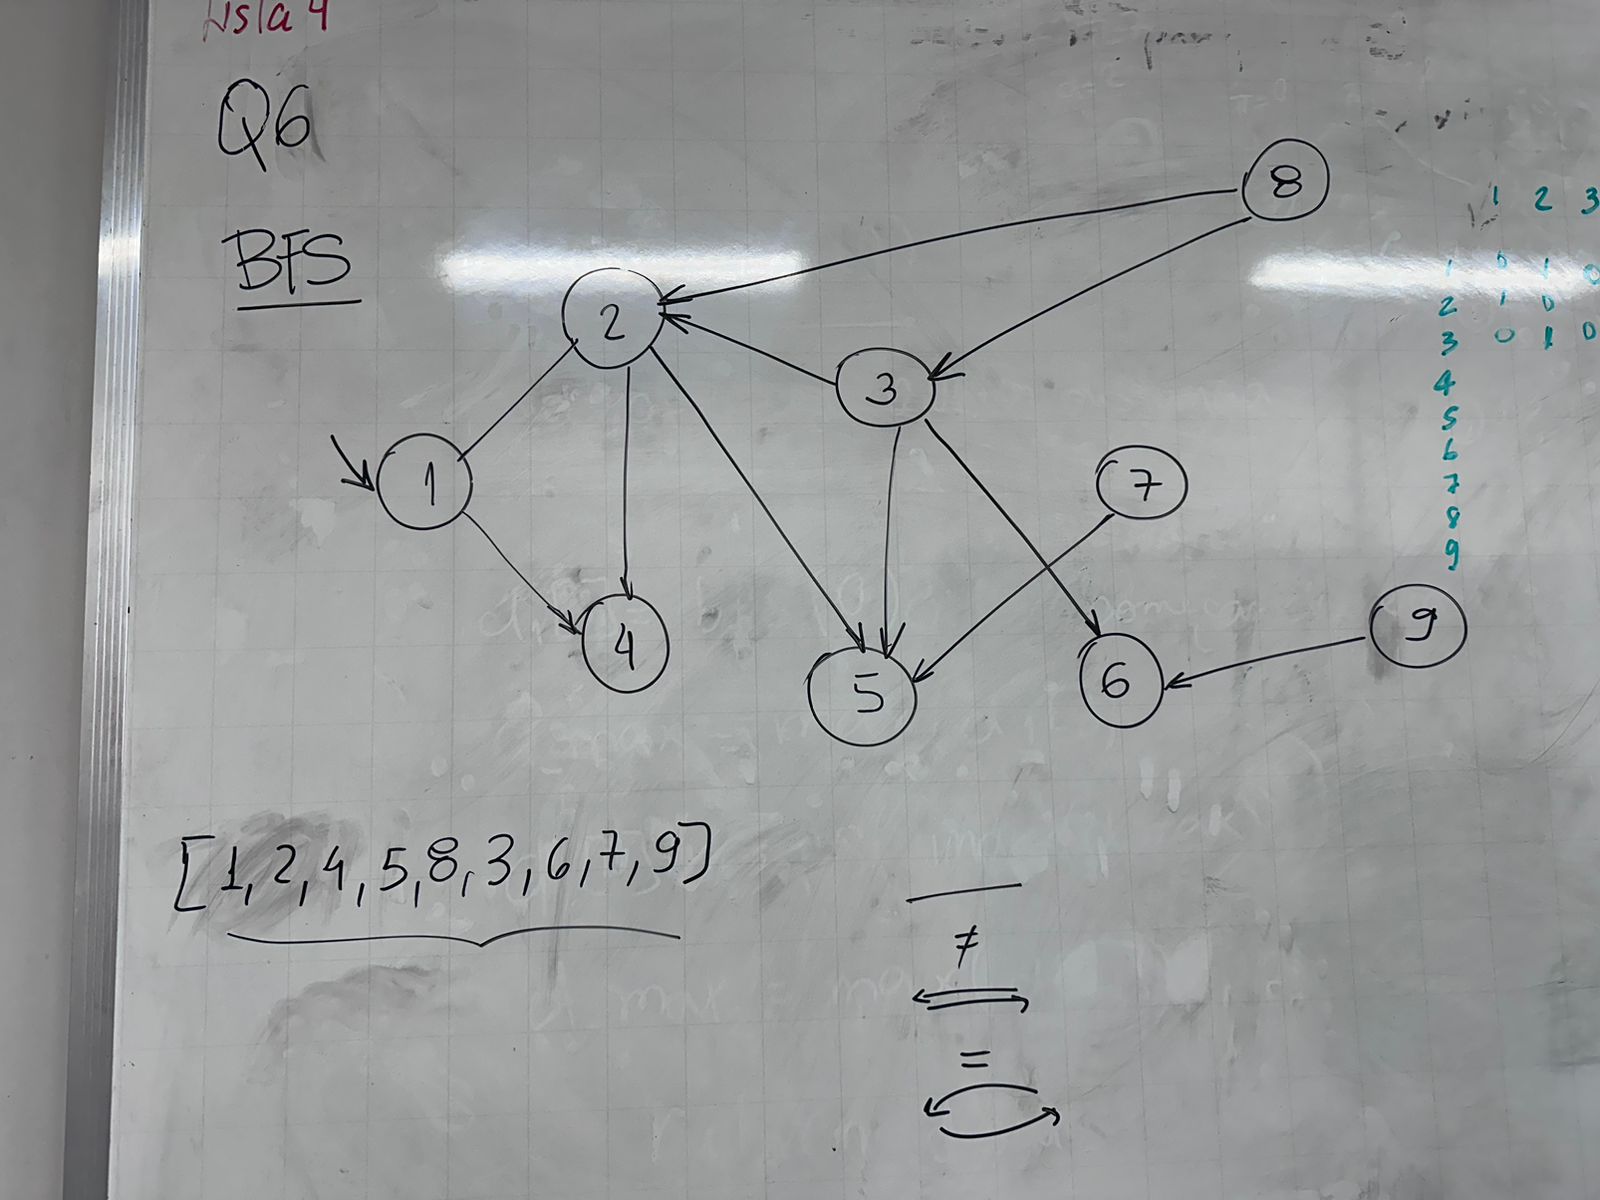 Lista 4
Q6
BFS
8
2
3
1
7
4
5
6
9
1 2 3
1 0 1 0
2 1 0
3 0 1 0
4
5
6
7
8
9
[1,2,4,5,8,3,6,7,9]
≠
=